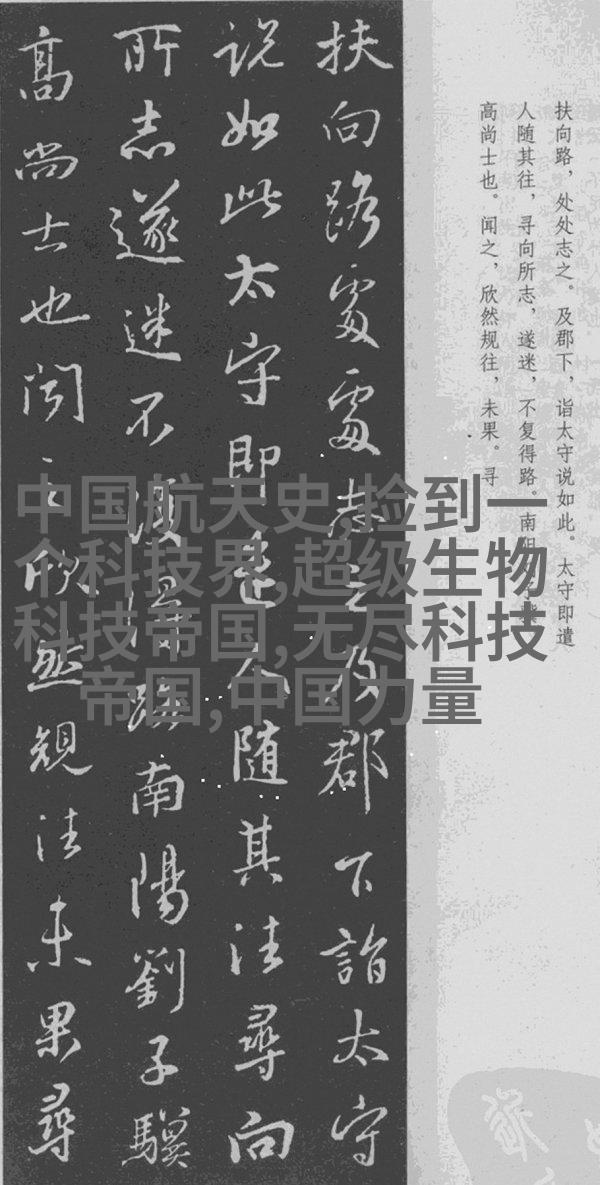 扶向路處處志之及郡下詣太守
说如此太守即遣人随其往尋向
所志遂迷不復得路南陽劉子驥
高尚士也闻之欣然規往未果尋
扶向路，处处志之。及郡下，诣太守说如此。太守即遣
人随其往，寻向所志，遂迷，不复得路。南阳
高尚士也。闻之，欣然规往，未果。寻
中国航天史,捡到一
个科技界,超级生物
科技帝国,无尽科技
帝国,中国力量